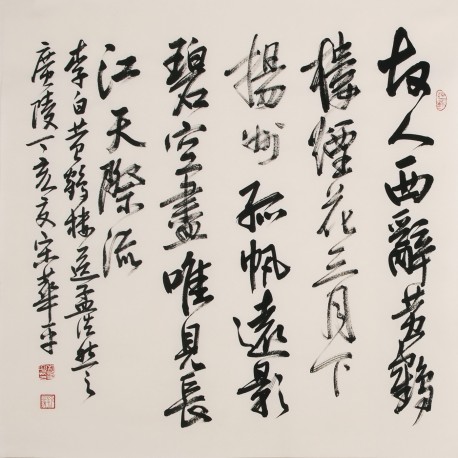 故人西辭黃鶴
樓煙花三月下
揚州孤帆遠影
碧空盡唯見長
江天際流
李白黃鶴樓送孟浩然之
廣陵丁亥夏宋華平